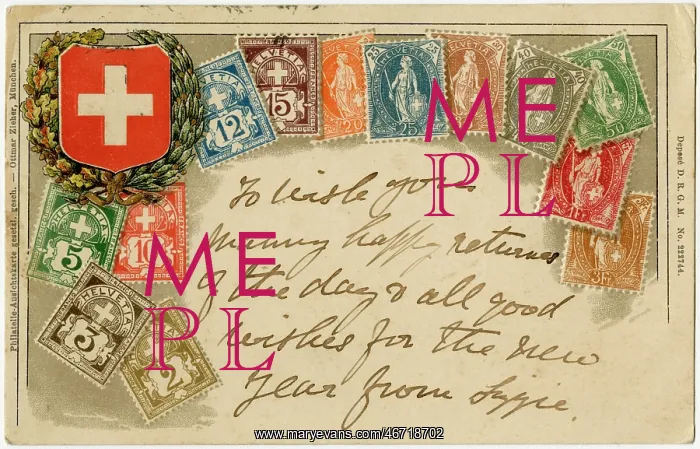 Philatelie-Ansichtskarte gesetzl. gesch. — Ottmar Zieher, München.
HELVETIA
12
HELVETIA
15
20
HELVETIA
25
HELVETIA
40
50
3FR
HELVETIA
5
10
HELVETIA
3
2
Deposé D. R. G. M. No. 222744.
To wish you
many happy returns
of the day & all good
wishes for the New
Year from Lizzie.
ME
PL
ME
PL
www.maryevans.com/46718702